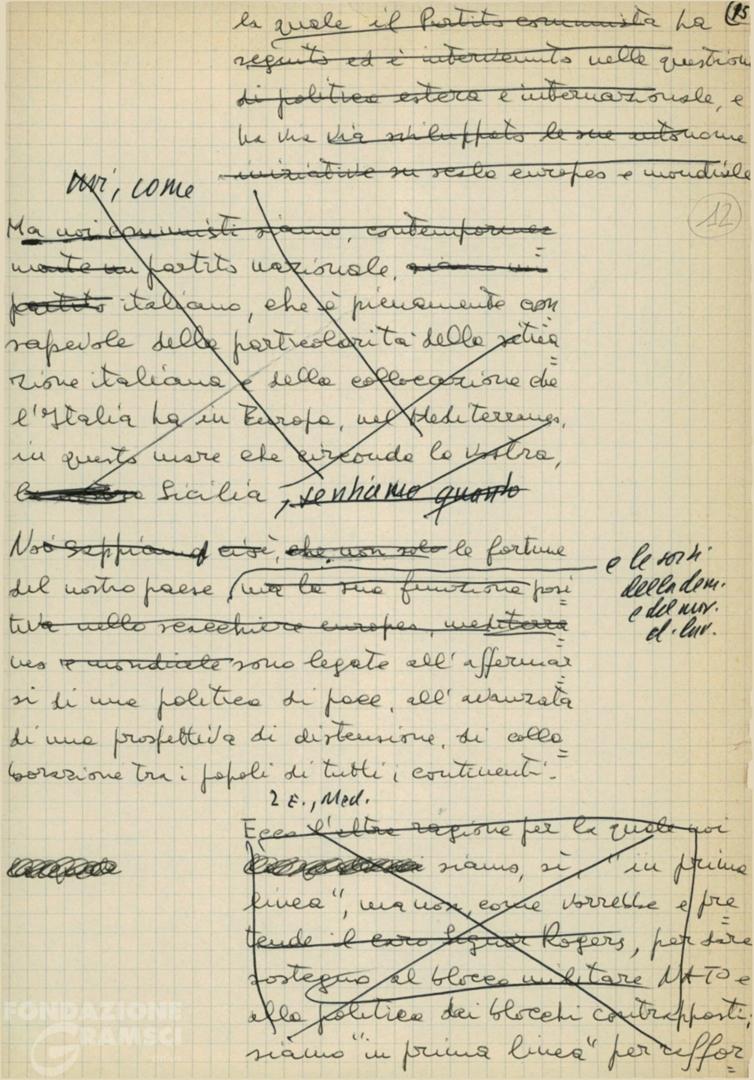 15
la quale il Partito comunista ha
seguito ed è intervenuto nelle question
di politica estera e internazionale, e
ha via via sviluppato le sue autonome
iniziative su scala europea e mondiale
noi, come
12
Ma noi comunisti siamo, contemporanea=
mente un partito nazionale, siamo un
partito italiano, che è pienamente con=
sapevole della particolarità della situa=
zione italiana e della collocazione che
l'Italia ha in Europa, nel Mediterraneo,
in questo mare che circonda la vostra,
Sicilia, sentiamo quanto
Noi sappiamo cioè, che non solo le fortune
e le sorti
della dem.
e del mov.
d. lav.
del nostro paese, ma la sua funzione posi=
tiva nello scacchiere europeo, mediterra=
neo e mondiale sono legate all'affermar=
si di una politica di pace, all'avanzata
di una prospettiva di distensione, di colla=
borazione tra i popoli di tutti i continenti.
2 E., Med.
Ecco l'altra ragione per la quale noi
siamo, sì, "in prima
linea", ma non, come vorrebbe e pre=
tende il caro Signor Rogers, per dare
sostegno al blocco militare NATO e
alla politica dei blocchi contrapposti;
siamo "in prima linea" per raffor=
FONDAZIONE
GRAMSCI